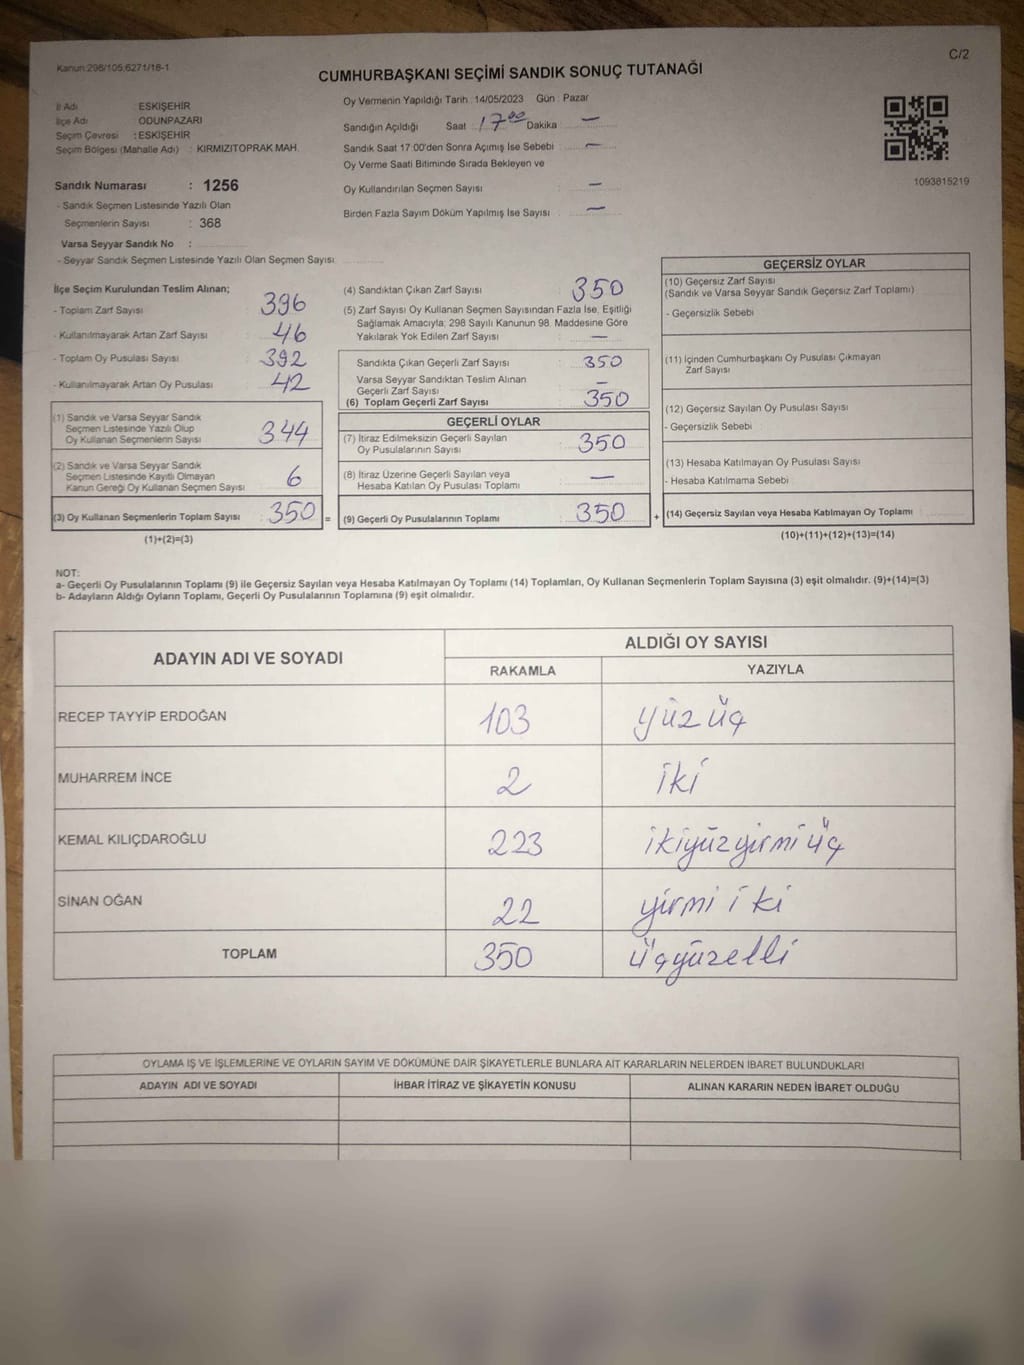 Kanun:298/105.6271/18-1
C/2
CUMHURBAŞKANI SEÇİMİ SANDIK SONUÇ TUTANAĞI
İl Adı : ESKİŞEHİR
İlçe Adı : ODUNPAZARI
Seçim Çevresi : ESKİŞEHİR
Seçim Bölgesi (Mahalle Adı) : KIRMIZITOPRAK MAH.
Sandık Numarası : 1256
- Sandık Seçmen Listesinde Yazılı Olan
Seçmenlerin Sayısı : 368
Varsa Seyyar Sandık No :
- Seyyar Sandık Seçmen Listesinde Yazılı Olan Seçmen Sayısı
Oy Vermenin Yapıldığı Tarih : 14/05/2023 Gün : Pazar
Sandığın Açıldığı Saat : 17 00 Dakika : —
Sandık Saat 17 00'den Sonra Açımış İse Sebebi : —
Oy Verme Saati Bitiminde Sırada Bekleyen ve
Oy Kullandırılan Seçmen Sayısı : —
Birden Fazla Sayım Döküm Yapılmış İse Sayısı : —
1093815219
İlçe Seçim Kurulundan Teslim Alınan;
- Toplam Zarf Sayısı : 396
- Kullanılmayarak Artan Zarf Sayısı : 46
- Toplam Oy Pusulası Sayısı : 392
- Kullanılmayarak Artan Oy Pusulası : 42
(1) Sandık ve Varsa Seyyar Sandık
Seçmen Listesinde Yazılı Olup
Oy Kullanan Seçmenlerin Sayısı : 344
(2) Sandık ve Varsa Seyyar Sandık
Seçmen Listesinde Kayıtlı Olmayan
Kanun Gereği Oy Kullanan Seçmen Sayısı : 6
(3) Oy Kullanan Seçmenlerin Toplam Sayısı : 350 =
(1)+(2)=(3)
(4) Sandıktan Çıkan Zarf Sayısı : 350
(5) Zarf Sayısı Oy Kullanan Seçmen Sayısından Fazla İse, Eşitliği
Sağlamak Amacıyla; 298 Sayılı Kanunun 98. Maddesine Göre
Yakılarak Yok Edilen Zarf Sayısı : —
Sandıkta Çıkan Geçerli Zarf Sayısı : 350
Varsa Seyyar Sandıktan Teslim Alınan
Geçerli Zarf Sayısı : —
(6) Toplam Geçerli Zarf Sayısı : 350
GEÇERLİ OYLAR
(7) İtiraz Edilmeksizin Geçerli Sayılan
Oy Pusulalarının Sayısı : 350
(8) İtiraz Üzerine Geçerli Sayılan veya
Hesaba Katılan Oy Pusulası Toplamı : —
(9) Geçerli Oy Pusulalarının Toplamı : 350 +
GEÇERSİZ OYLAR
(10) Geçersiz Zarf Sayısı
(Sandık ve Varsa Seyyar Sandık Geçersiz Zarf Toplamı)
- Geçersizlik Sebebi
(11) İçinden Cumhurbaşkanı Oy Pusulası Çıkmayan
Zarf Sayısı
(12) Geçersiz Sayılan Oy Pusulası Sayısı
- Geçersizlik Sebebi
(13) Hesaba Katılmayan Oy Pusulası Sayısı
- Hesaba Katılmama Sebebi
(14) Geçersiz Sayılan veya Hesaba Katılmayan Oy Toplamı :
(10)+(11)+(12)+(13)=(14)
NOT:
a- Geçerli Oy Pusulalarının Toplamı (9) ile Geçersiz Sayılan veya Hesaba Katılmayan Oy Toplamı (14) Toplamları, Oy Kullanan Seçmenlerin Toplam Sayısına (3) eşit olmalıdır. (9)+(14)=(3)
b- Adayların Aldığı Oyların Toplamı, Geçerli Oy Pusulalarının Toplamına (9) eşit olmalıdır.
ADAYIN ADI VE SOYADI
ALDIĞI OY SAYISI
RAKAMLA YAZIYLA
RECEP TAYYİP ERDOĞAN 103 yüzüç
MUHARREM İNCE 2 iki
KEMAL KILIÇDAROĞLU 223 ikiyüzyirmiüç
SİNAN OĞAN 22 yirmi iki
TOPLAM 350 üçyüzelli
OYLAMA İŞ VE İŞLEMLERİNE VE OYLARIN SAYIM VE DÖKÜMÜNE DAİR ŞİKAYETLERLE BUNLARA AİT KARARLARIN NELERDEN İBARET BULUNDUKLARI
ADAYIN ADI VE SOYADI İHBAR İTİRAZ VE ŞİKAYETİN KONUSU ALINAN KARARIN NEDEN İBARET OLDUĞU